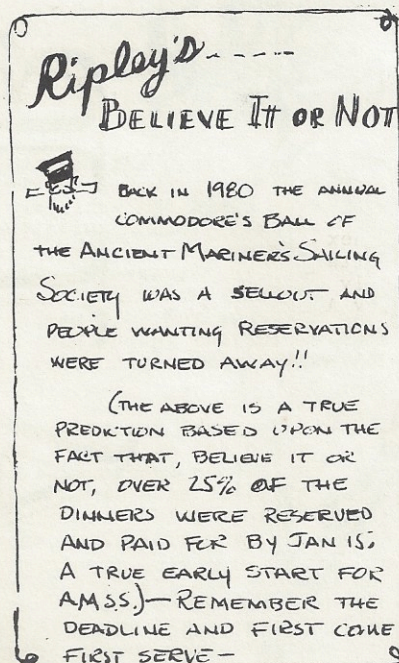 Ripley's-----
BELIEVE IT OR NOT
BACK IN 1980 THE ANNUAL
COMMODORE'S BALL OF
THE ANCIENT MARINER'S SAILING
SOCIETY WAS A SELLOUT AND
PEOPLE WANTING RESERVATIONS
WERE TURNED AWAY!!
(THE ABOVE IS A TRUE
PREDICTION BASED UPON THE
FACT THAT, BELIEVE IT OR
NOT, OVER 25% OF THE
DINNERS WERE RESERVED
AND PAID FOR BY JAN 15;
A TRUE EARLY START FOR
A.M.S.S.)—REMEMBER THE
DEADLINE AND FIRST COME
FIRST SERVE—